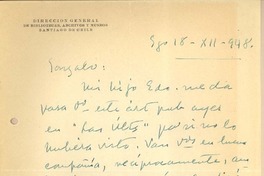 DIRECCION GENERAL
DE BIBLIOTECAS, ARCHIVOS Y MUSEOS
SANTIAGO DE CHILE
Sgo 18 - XII - 948.
Gonzalo:
Mi hijo Edo. me da
para Ud este art pub ayer
en "Las Ults" por si no lo
hubiera visto. Van Uds en buena
compañía, recíprocamente, aun